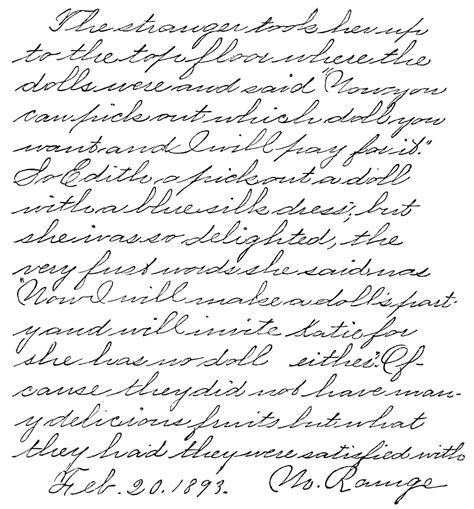 The stranger took her up
to the top floor where the
dolls were and said "Now you
can pick out which doll you
want and I will pay for it."
So Edith, a pick out a doll
with a blue silk dress, but
she was so delighted, the
very first words she said was
"Now I will make a doll's part-
y and will invite Katie for
she has no doll either". Of-
cause they did not have man-
y delicious fruits but what
they had they were satisfied with.
Feb. 20. 1893.